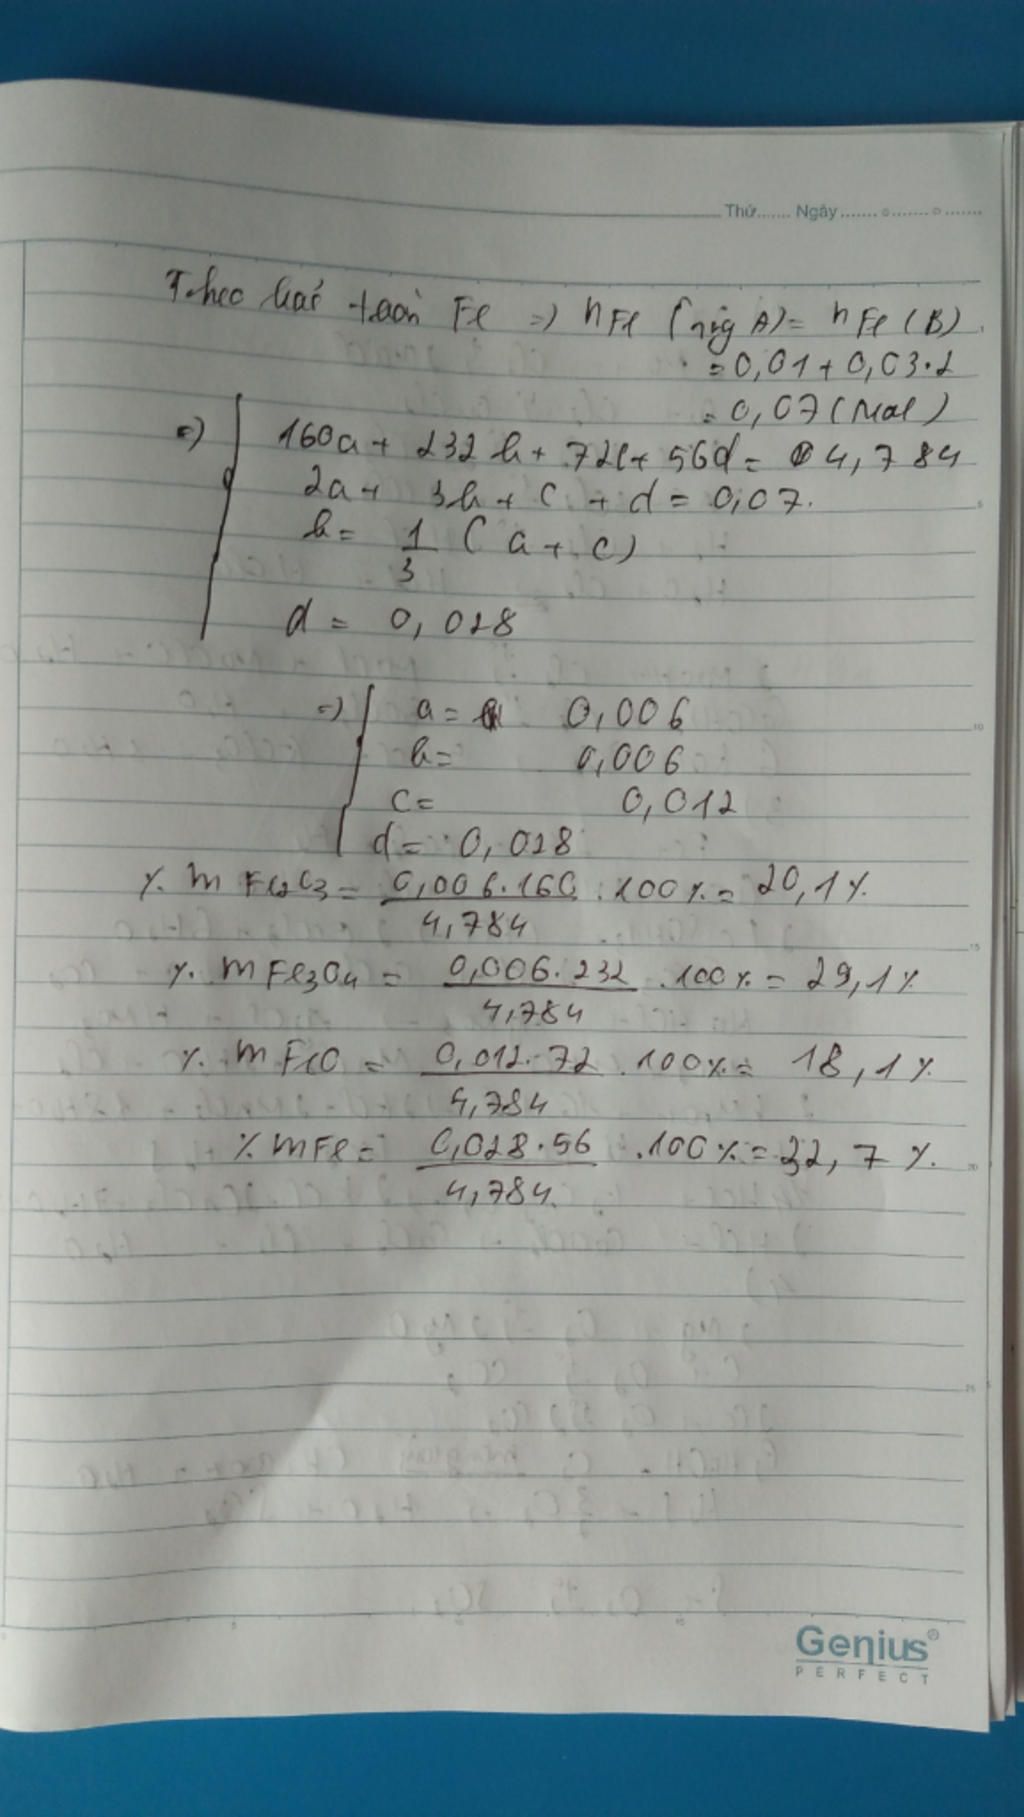 Thứ....... Ngày.......o.......o.......
Theo bảo toàn Fe => nFe (trg A) = nFe (B)
= 0,01 + 0,03.2
= 0,07 (mol)
=> 160a + 232b + 72c + 56d = 4,784
2a + 3b + c + d = 0,07.
b = 1/3 (a + c)
d = 0,028
=> a = 0,006
b = 0,006
c = 0,012
d = 0,028
% m Fe2O3 = 0,006.160/4,784 . 100% = 20,1%
% m Fe3O4 = 0,006.232/4,784 . 100% = 29,1%
% m FeO = 0,012.72/4,784 . 100% = 18,1%
% m Fe = 0,028.56/4,784 . 100% = 32,7%.
Genius
PERFECT